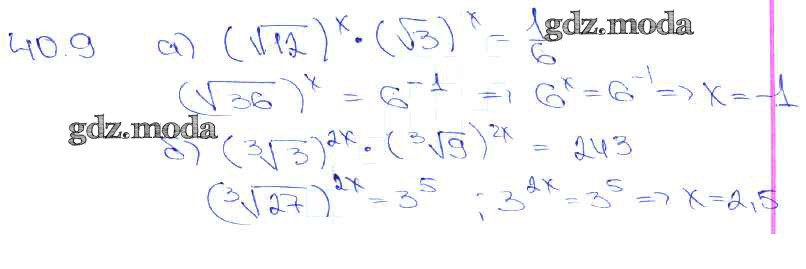 40.9 а) (√12)^x · (√3)^x = 1/6 gdz.moda
(√36)^x = 6^-1 => 6^x = 6^-1 => x = -1
gdz.moda
б) (³√3)^2x · (³√9)^2x = 243
(³√27)^2x = 3^5 ; 3^2x = 3^5 => x = 2,5